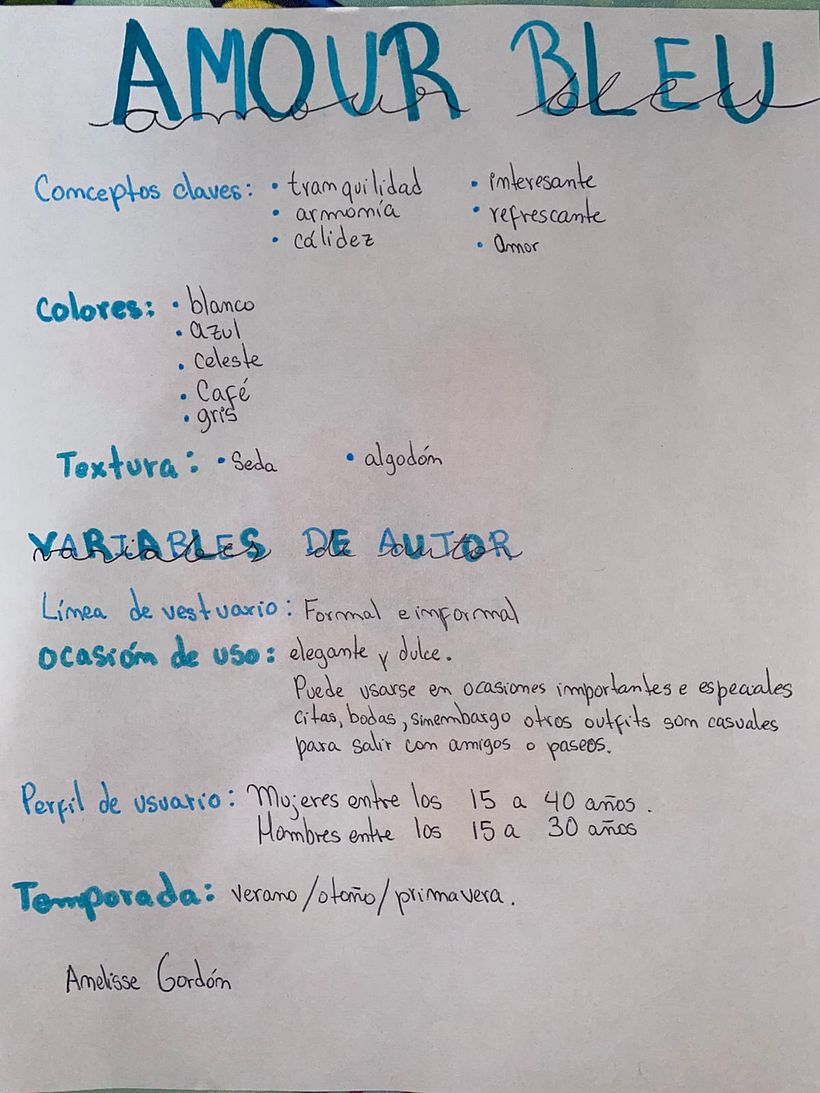 AMOUR BLEU
amour bleu
Conceptos claves: • tranquilidad • interesante
• armonía • refrescante
• cálidez • Amor
Colores: • blanco
• azul
• celeste
• Café
• gris
Textura: • Seda • algodón
VARIABLES DE AUTOR
variables de autor
Línea de vestuario: Formal e informal
Ocasión de uso: elegante y dulce.
Puede usarse en ocasiones importantes e especiales
citas, bodas, sinembargo otros outfits son casuales
para salir con amigos o paseos.
Perfil de usuario: Mujeres entre los 15 a 40 años.
Hombres entre los 15 a 30 años
Temporada: verano/otoño/primavera.
Amelisse Gordón